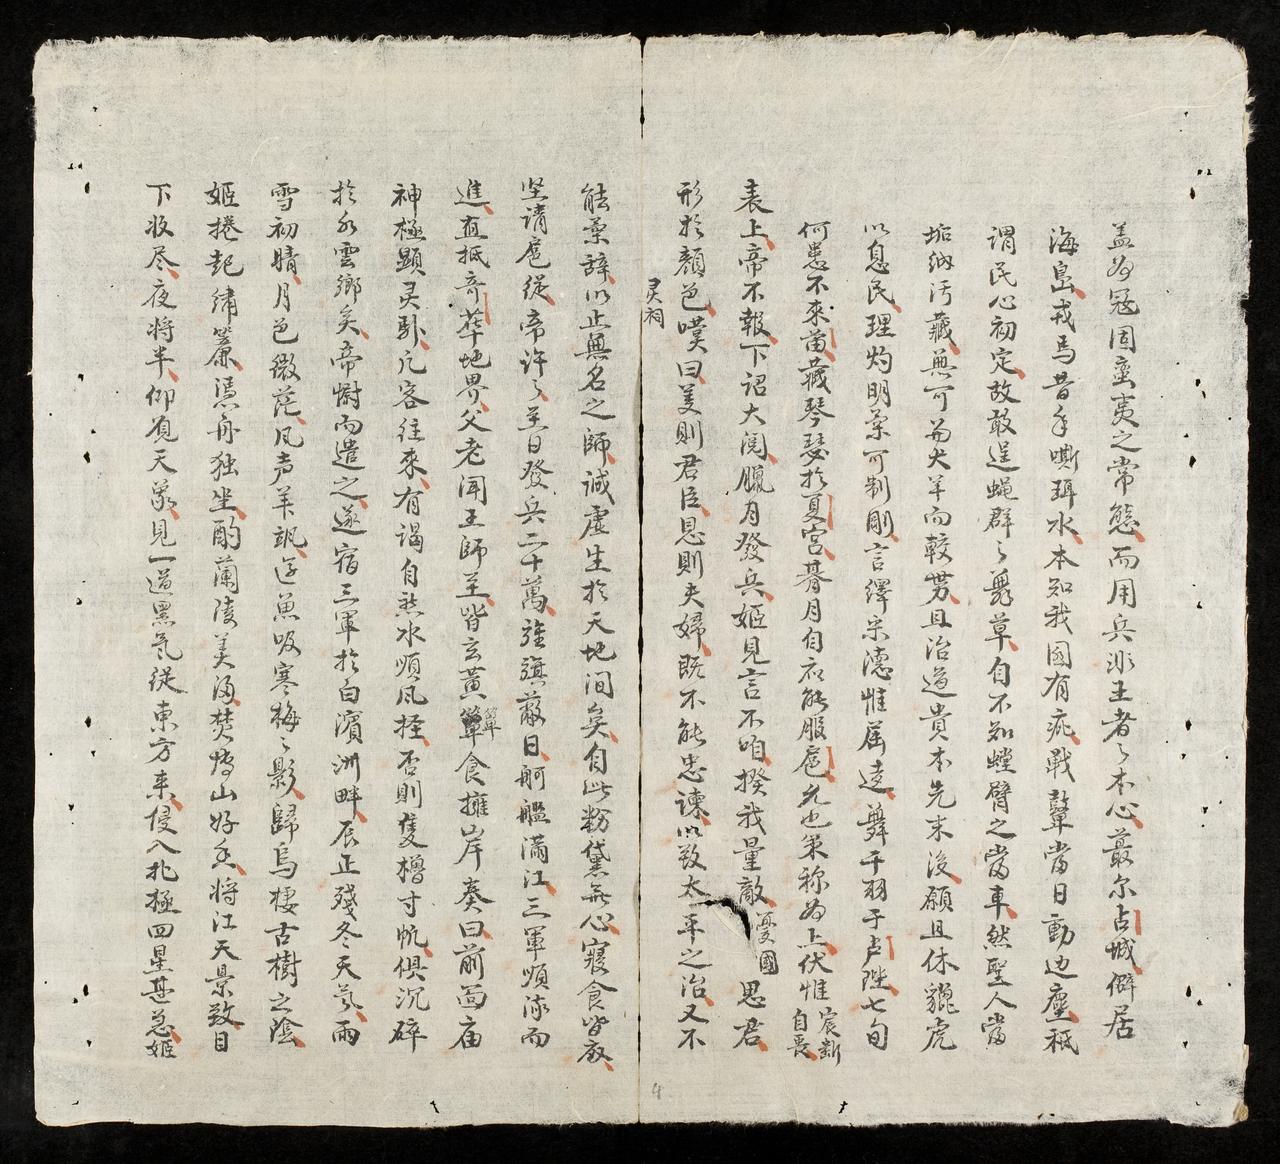 盖為寇固蛮夷之常態而用兵非王者之本心蕞尔占城僻居
海島戎馬昔年嘶珥水本知我國有疵戰鼙當日動边塵秪
謂民心初定故敢逞蝇群々舞草自不知螳臂之當車然聖人當
垢納污藏無可与犬羊而較勞且治道貴本先末後願且休貔虎
以息民理灼明蒙可制剛言繹柔德惟届遠舞干羽于卢陛七旬
何患不來苗藏琴瑟於夏宮朞月自君能服扈允也策称為上伏惟宸断自衷
表上帝不報下詔大阅臘月發兵姬見言不咱揆我量敵憂國思君
形於顏色嘆曰美則君臣恩則夫婦既不能忠諫以致太平之治又不
灵祠
能藁辞以止無名之師诚虚生於天地间矣自此粉黛無心寝食皆廢
坚请扈從帝许々至日發兵二十萬旌旗蔽日舸艦滿江三軍順流而
進直抵奇華地界父老闻王師至皆玄黃簞簞食擁岸奏曰前面庙
神極顯灵卧凡客往來有谒自然水順风輕否則隻櫓寸帆俱沉碎
於水雲鄉矣帝慰而遣之遂宿三軍於白濱洲畔辰正殘冬天氣雨
雪初晴月色微茫风声羊飒逆魚吸寒梅之影歸烏棲古樹之陰
姬捲起绣簾凴舟独坐酌蘭陵美酒焚博山好香将江天景致目
下收尽夜将半仰覌天象見一道黑氣從東方来侵入北極四星甚急姬